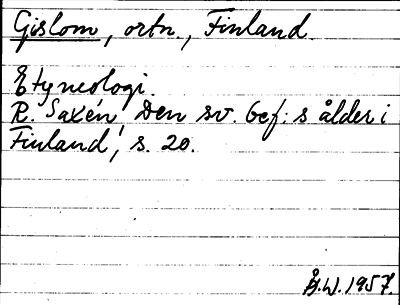 Gislom, ortn., Finland.
Etymologi.
R. Saxén Den sv. bef:s ålder i
Finland, s. 20.
Å.W. 1957.